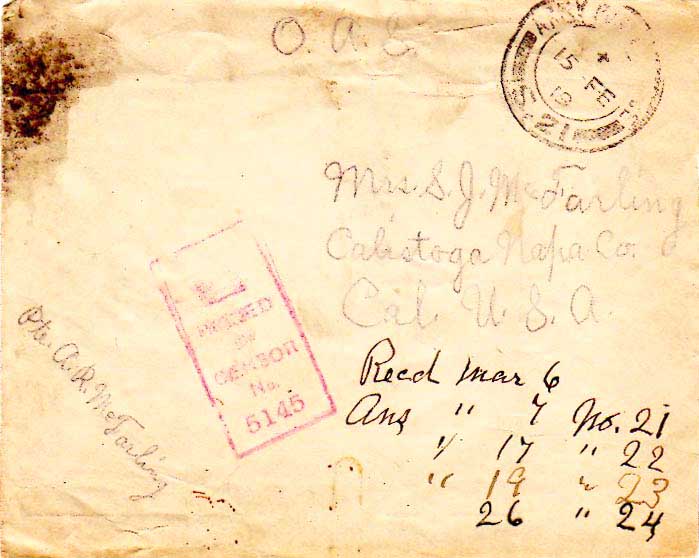 O. A. S.
ARMY
15 FE
19
S. 21
Mrs. S. J. McFarling
Calistoga Napa Co.
Cal. U. S. A.
PASSED
BY
CENSOR
No.
5145
Pte. A. R. McFarling
Recd Mar 6
Ans " 7 No. 21
" 17 " 22
" 19 " 23
26 " 24